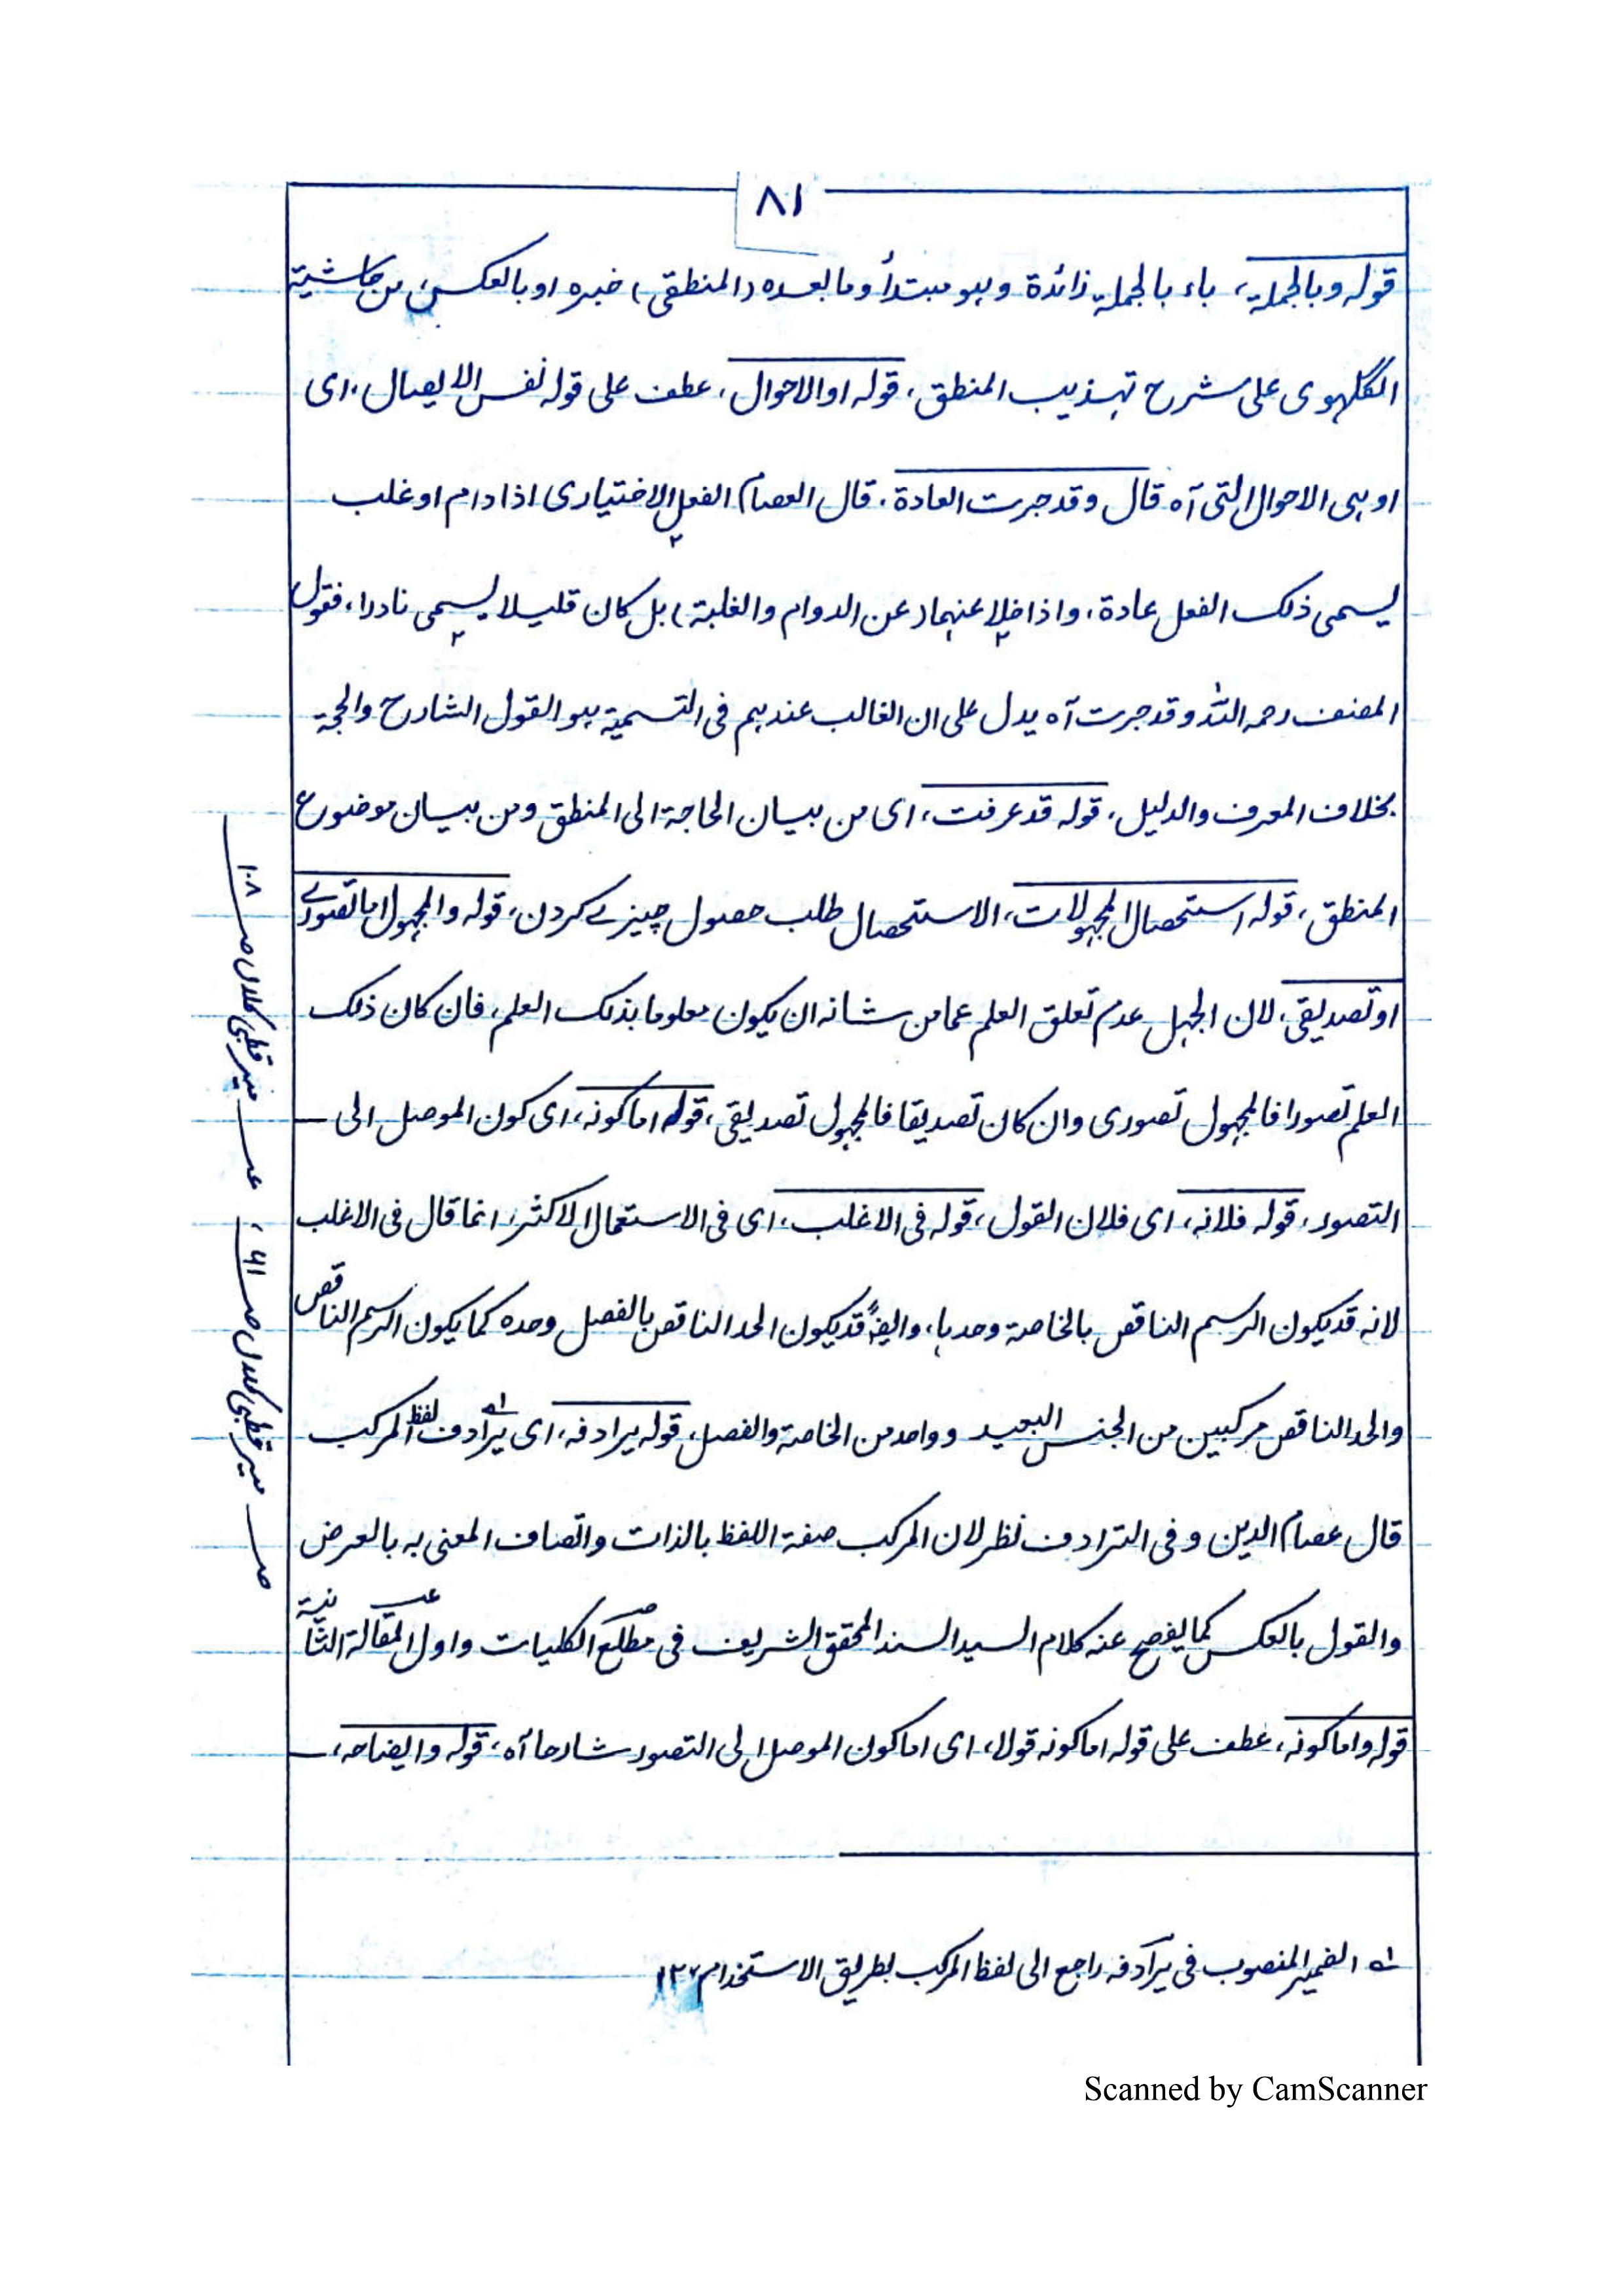 ٨١
قوله وبالجملة، باء بالجملة زائدة وهو مبتدأ وما بعده (المنطقى) خبره او بالعكس، من حاشية
الگلهوى على شرح تهذيب المنطق، قوله او الاحوال، عطف على قوله نفس الايصال، اى
او هى الاحوال التى آه قال وقد جرت العادة، قال العصام الفعل الاختيارى اذا دام او غلب
يسمى ذلك الفعل عادة، واذا خلا عنهما (عن الدوام والغلبة) بل كان قليلا يسمى نادرا، فقول
المصنف رحمه الله وقد جرت آه يدل على ان الغالب عندهم فى التسمية هو القول الشارح والحجة
بخلاف المعرف والدليل، قوله قد عرفت، اى من بيان الحاجة الى المنطق ومن بيان موضوع
المنطق، قوله استحصال المجهولات، الاستحصال طلب حصول چيزے كردن، قوله والمجهول اما تصورے
او تصديقى، لان الجهل عدم تعلق العلم عما من شانه ان يكون معلوما بذلك العلم، فان كان ذلك
العلم تصورا فالمجهول تصورى وان كان تصديقا فالمجهول تصديقى، قوله اما كونه، اى كون الموصل الى
التصور، قوله فلانه، اى فلان القول، قوله فى الاغلب، اى فى الاستعمال الاكثر، انما قال فى الاغلب
لانه قد يكون الرسم الناقص بالخاصة وحدها، وايضًا قد يكون الحد الناقص بالفصل وحده كما يكون الرسم الناقص
والحد الناقص مركبين من الجنس البعيد وواحد من الخاصة والفصل، قوله يرادفه، اى يرادف لفظ المركب
قال عصام الدين وفى الترادف نظر لان المركب صفة اللفظ بالذات واتصاف المعنى به بالعرض
والقول بالعكس كما يفصح عنه كلام السيد السند المحقق الشريف فى مطلع الكليات واول المقالة الثانية
قوله واما كونه، عطف على قوله اما كونه قولا، اى اما كون الموصل الى التصور شارحا آه، قوله وايضاحه،
له الضمير المنصوب فى يرادفه راجع الى لفظ المركب بطريق الاستخدام ١٢
صـ مير قطبى كلال صـ ٦١، عـ مير قطبى كلال صـ ١٠٨
Scanned by CamScanner